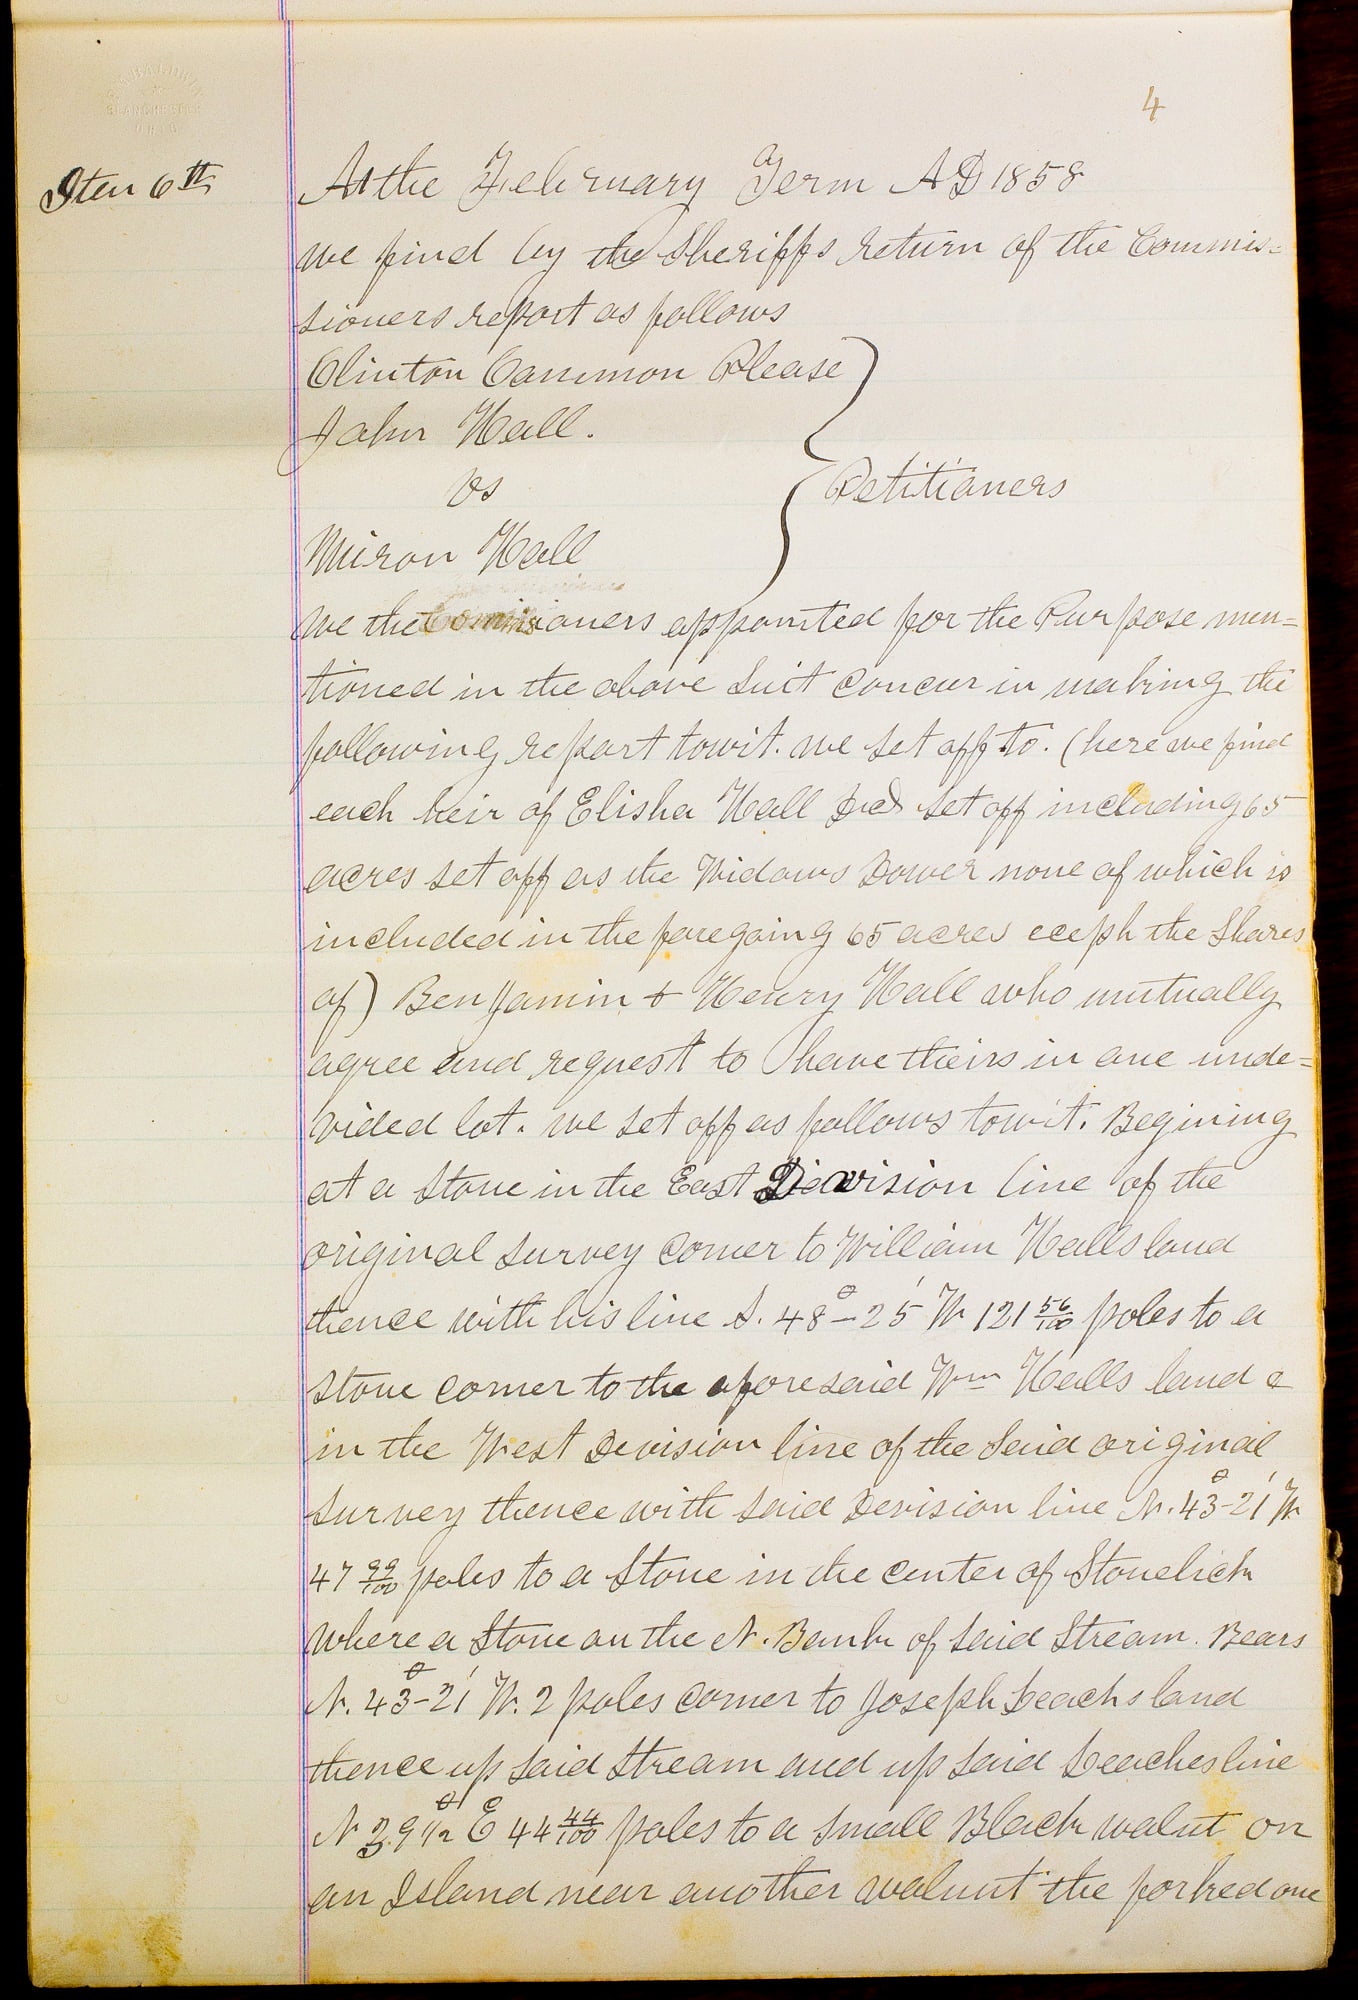 4
Iten 6th
At the February Term A D 1858
we find by the Sheriffs return of the Commis=
sioners report as follows
Clinton Common Please
John Hall.
vs
Petitioners
Miron Hall
we the Comisioners appointed for the Purpose men=
tioned in the above suit concur in making the
following report towit. we set off to. (here we find
each heir of Elisha Hall Decd set off including 65
acres set off as the Widows Dower none of which is
included in the foregoing 65 acres eceph the Shares
of) Benjamin & Henry Hall who mutually
agree and request to have theirs in one unde=
vided lot. we set off as follows towit. Begining
at a Stone in the East Division line of the
original survey corner to William Halls land
thence with his line S. 48°-25' W 121 56/100 poles to a
stone corner to the aforesaid Wm Halls land &
in the West Devision line of the said original
survey thence with said Devision line N. 43°-21' W
47 99/100 poles to a Stone in the center of Stonelick
where a Stone on the N. Bank of said Stream. Bears
N. 43°-21' W. 2 poles corner to Joseph Leachs land
thence up said stream and up said Leaches line
N 39° 1/2 E 44 44/100 poles to a small Black walut on
an Island near another walnut the forked one